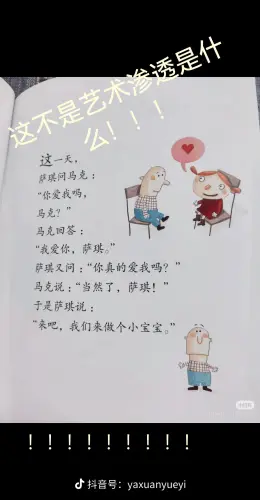 这不是艺术渗透是什
么！！！
这一天，
萨琪问马克：
“你爱我吗，
马克？”
马克回答：
“我爱你，萨琪。”
萨琪又问：“你真的爱我吗？”
马克说：“当然了，萨琪！”
于是萨琪说：
“来吧，我们来做个小宝宝。”
！！！！！！！！！
抖音号：yaxuanyueyi